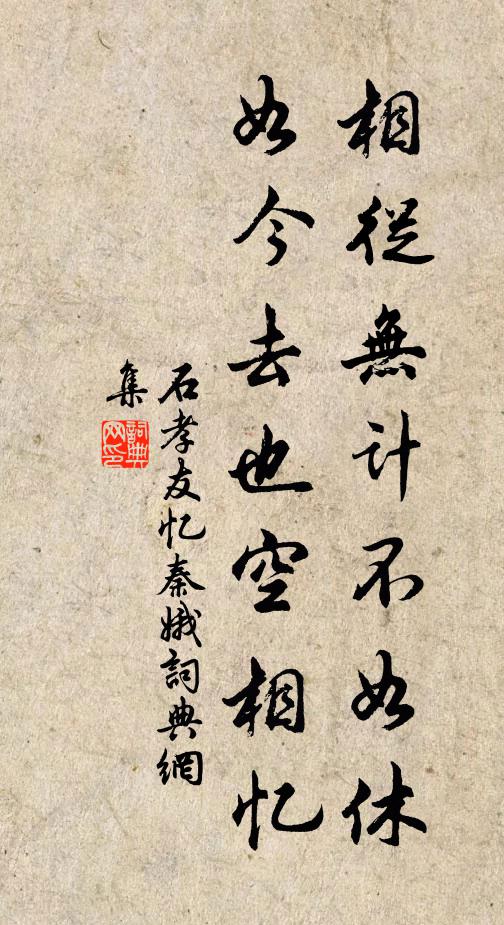 相從無計不如休
如今去也空相忆
石孝友忆秦娥詞典網
集
詞典网印